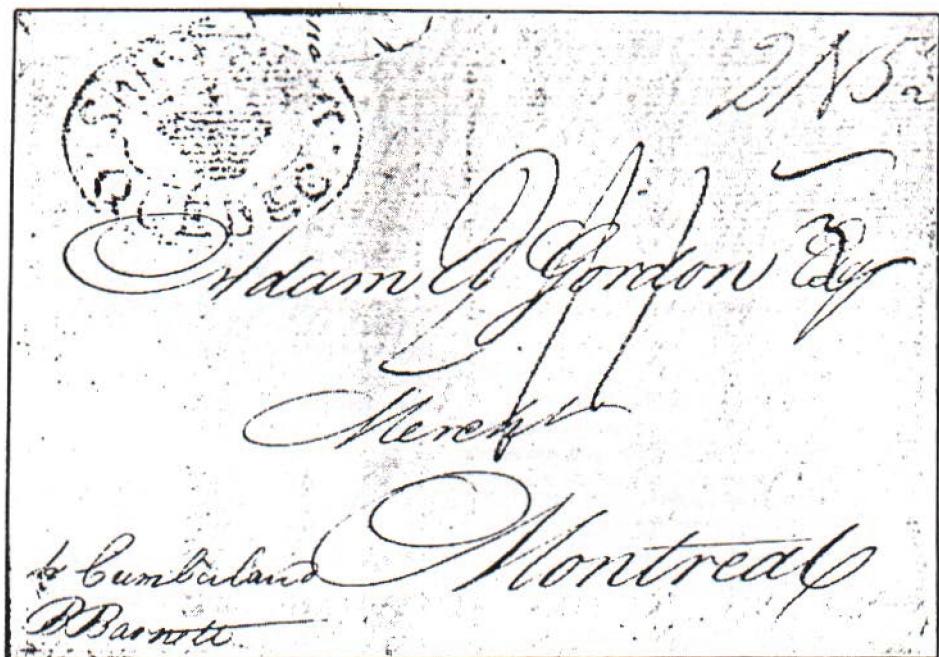 SHIP LETTER QUEBEC
2N5
Adam J Gordon Esqr
Mercht
Montreal
p Cumberland
B Barnett